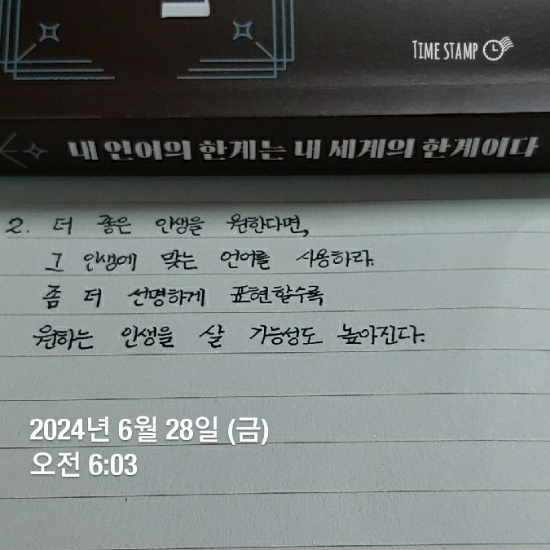 TIME STAMP
내 언어의 한계는 내 세계의 한계이다
2. 더 좋은 인생을 원한다면,
그 인생에 맞는 언어를 사용하라.
좀 더 선명하게 표현할수록
원하는 인생을 살 가능성도 높아진다.
2024년 6월 28일 (금)
오전 6:03